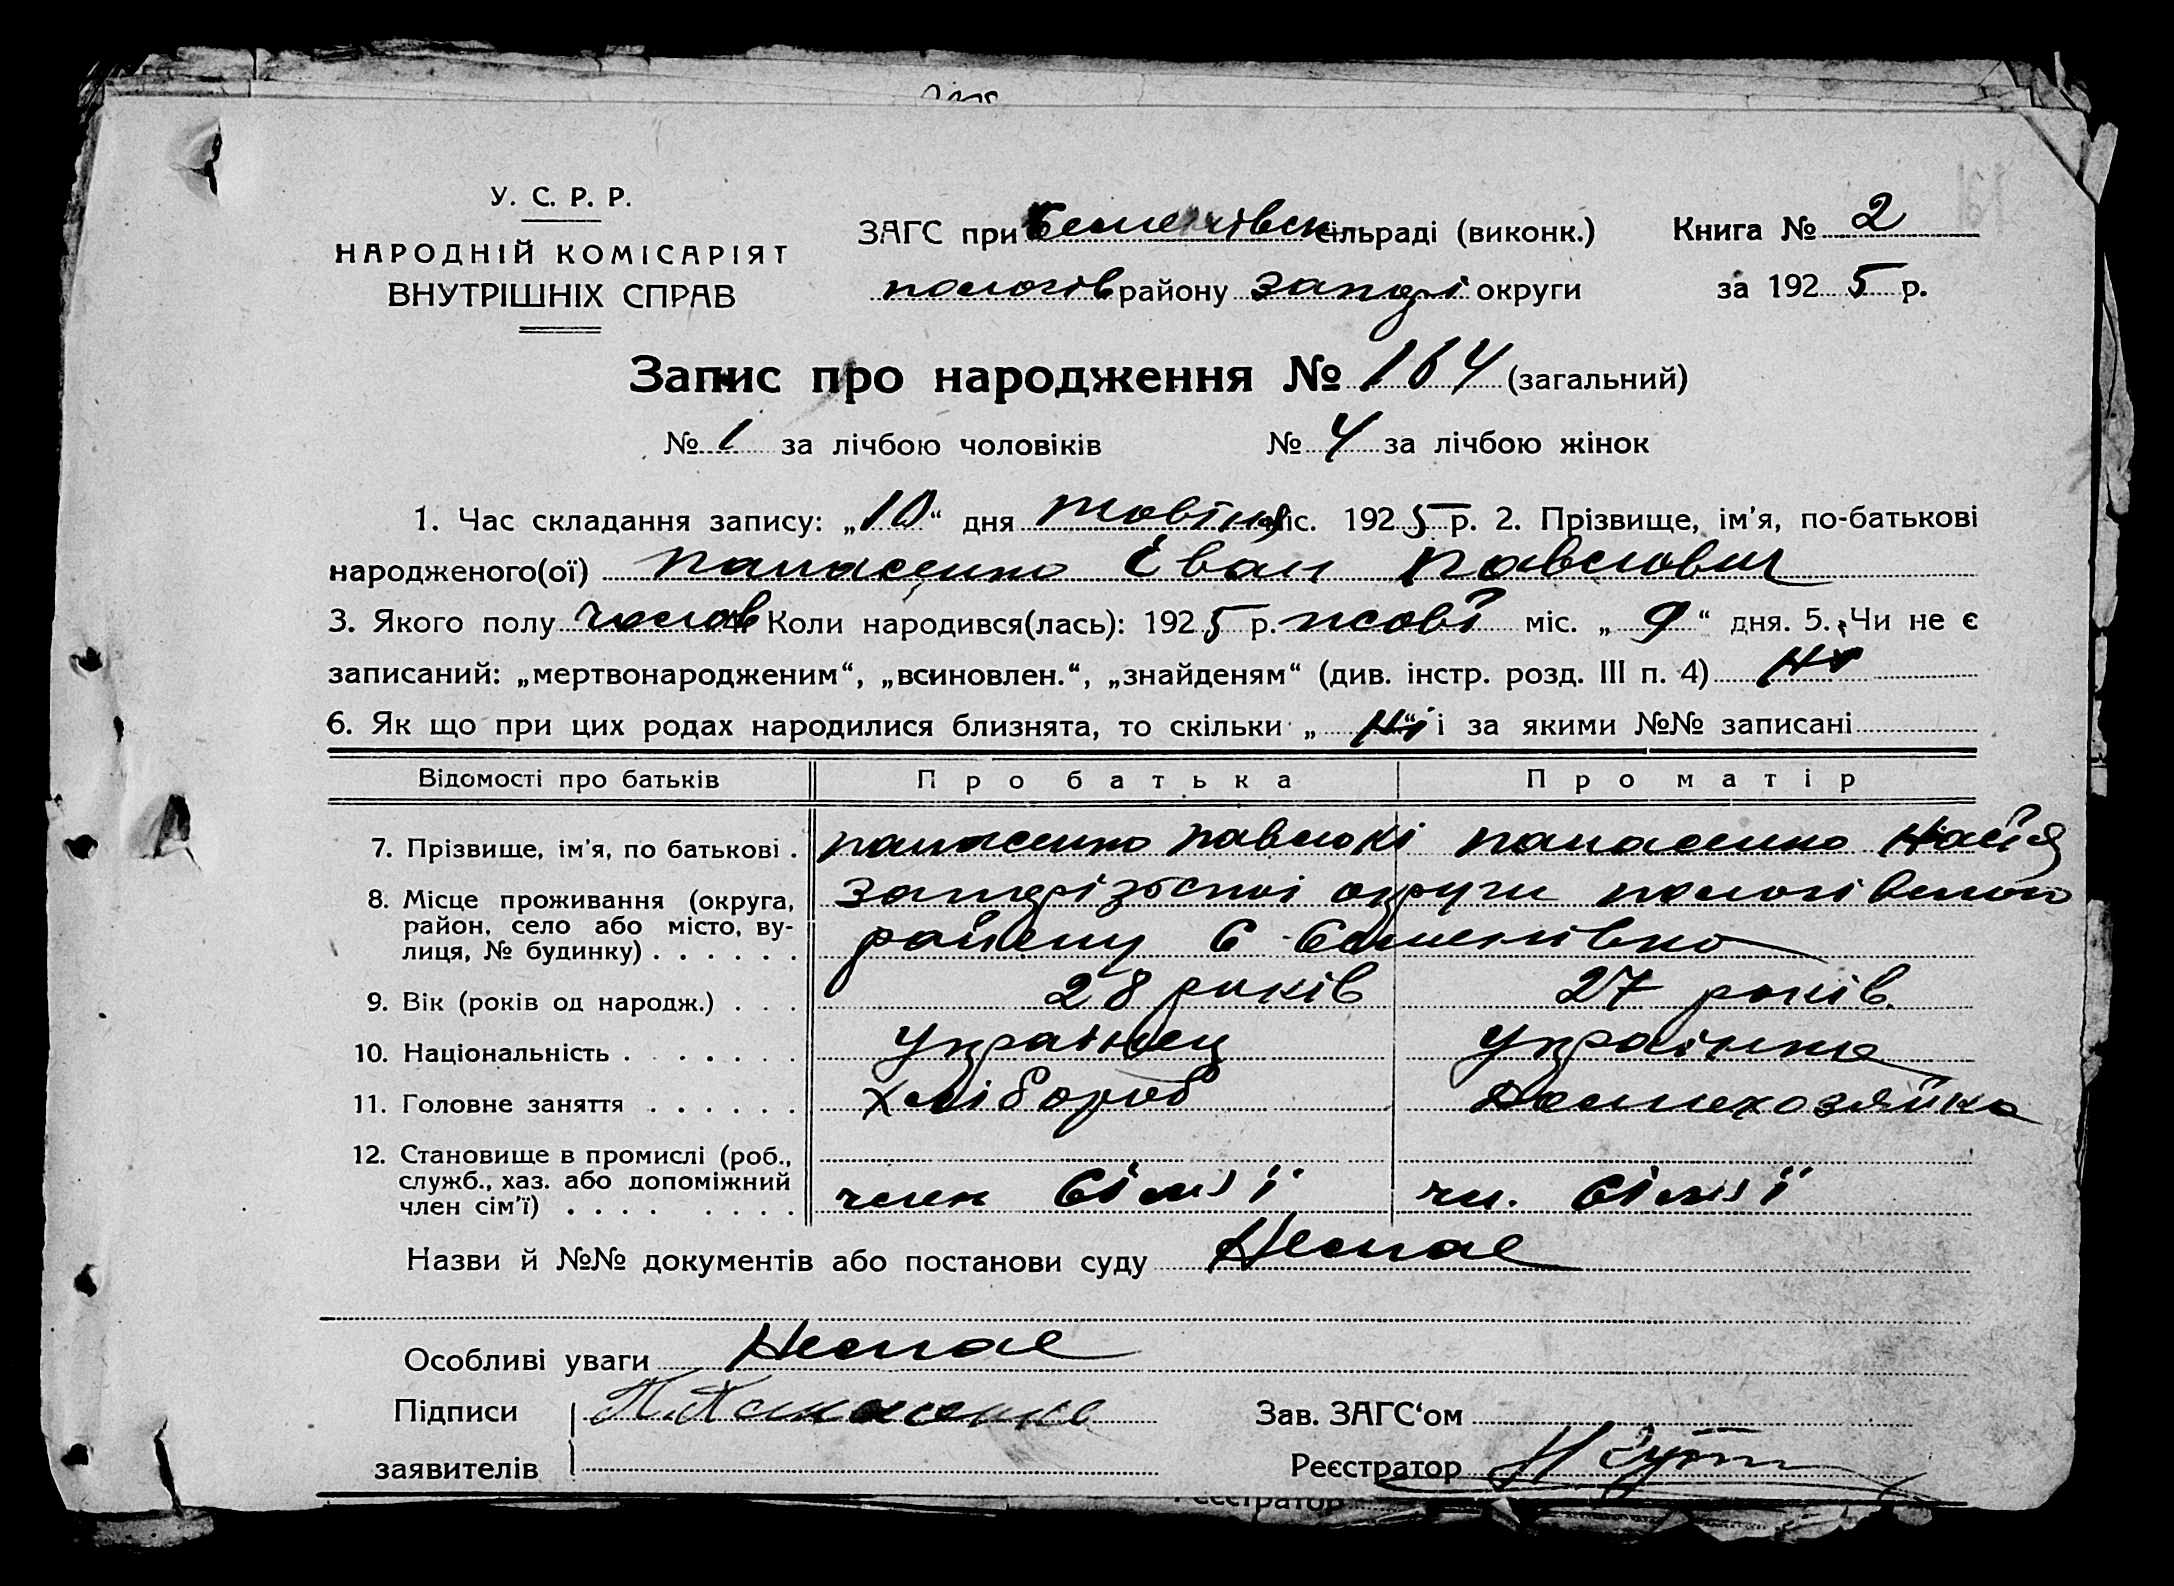 У. С. Р. Р.
НАРОДНІЙ КОМІСАРІЯТ
ВНУТРІШНІХ СПРАВ
ЗАГС при Семенівск сільраді (виконк.)
пологів району запорі округи
Книга № 2
за 1925 р.
Запис про народження № 164 (загальний)
№ 1 за лічбою чоловіків № 4 за лічбою жінок
1. Час складання запису: „10“ дня Жовтня міс. 1925 р. 2. Прізвище, ім'я, по-батькові
народженого(ої) панасенко Іван павлович
3. Якого полу чолов Коли народився(лась): 1925 р. жовт міс. „9“ дня. 5. Чи не є
записаний: „мертвонародженим“, „всиновлен.“, „знайденям“ (див. інстр. розд. III п. 4) ні
6. Як що при цих родах народилися близнята, то скільки „ні“ і за якими №№ записані
Відомості про батьків Про батька Про матір
7. Прізвище, ім'я, по батькові . панасенко павло панасенко
8. Місце проживання (округа, район, село або місто, вулиця, № будинку) . . . . . . округи пологівского
району с Семенівка
9. Вік (років од народж.) . . . 28 років 27 років
10. Національність . . . . . . . українец українка
11. Головне заняття . . . . . . хлібороб домохозяйка
12. Становище в промислі (роб., служб., хаз. або допоміжний член сім'ї) . . . . . . . . член сімʼї чл. сімʼї
Назви й №№ документів або постанови суду Немає
Особливі уваги Немає
Підписи П. Панасенко Зав. ЗАГС‘ом
заявителів Реєстратор
Реєстратор